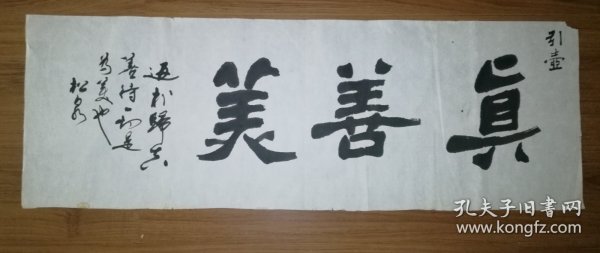 引壶
真善美
返朴归真
善待一切是
为美也
松泉
孔夫子旧书网
www.kongfz.com